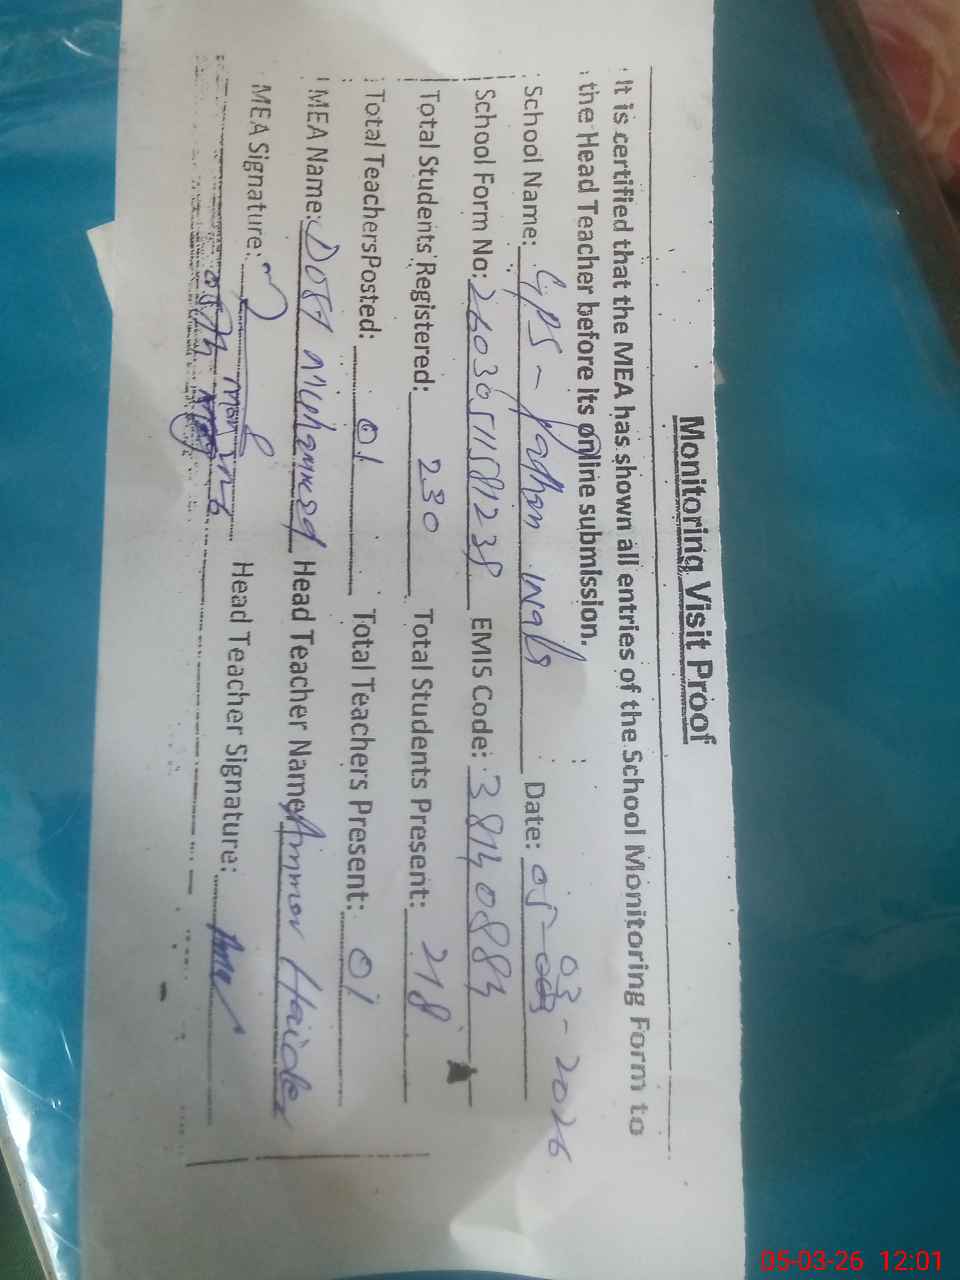 Monitoring Visit Proof
It is certified that the MEA has shown all entries of the School Monitoring Form to
the Head Teacher before its online submission.
School Name: GPS - Pathan Date: 05-03-2026
School Form No: 26030511581238 EMIS Code: 38140884
Total Students Registered: 230 Total Students Present: 218
Total TeachersPosted: 01 Total Teachers Present: 01
MEA Name: DOST Muhammed Head Teacher Name Ammar Haider
MEA Signature: Head Teacher Signature:
05-03-26 12:01